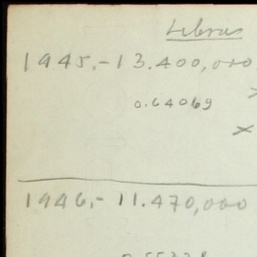 Libras
1945,- 13.400,000
0.64069
1946,- 11.470,000